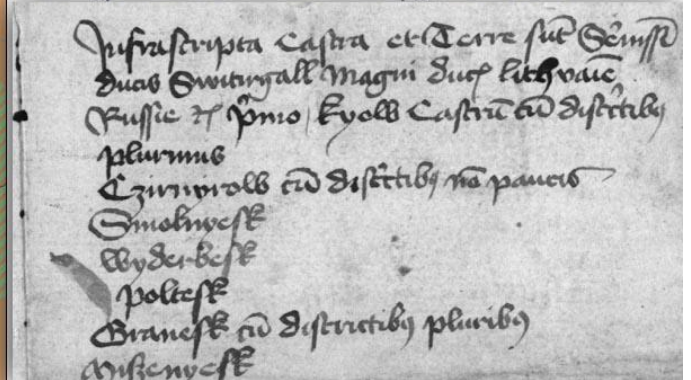 Infrascripta Castra et Terre sūt Sēnissī
ducis Switrigall Magni ducꝭ lithvaīe
Russie ⁊cꝭ pͥmo kyow Castrū cū distͥctibꝰ
plurimis
Czirnyɤow cū distͥctibꝰ nō paucis
Smolnyesk
wyderbesk
poltesk
Branesk cū districtibꝰ pluribꝰ